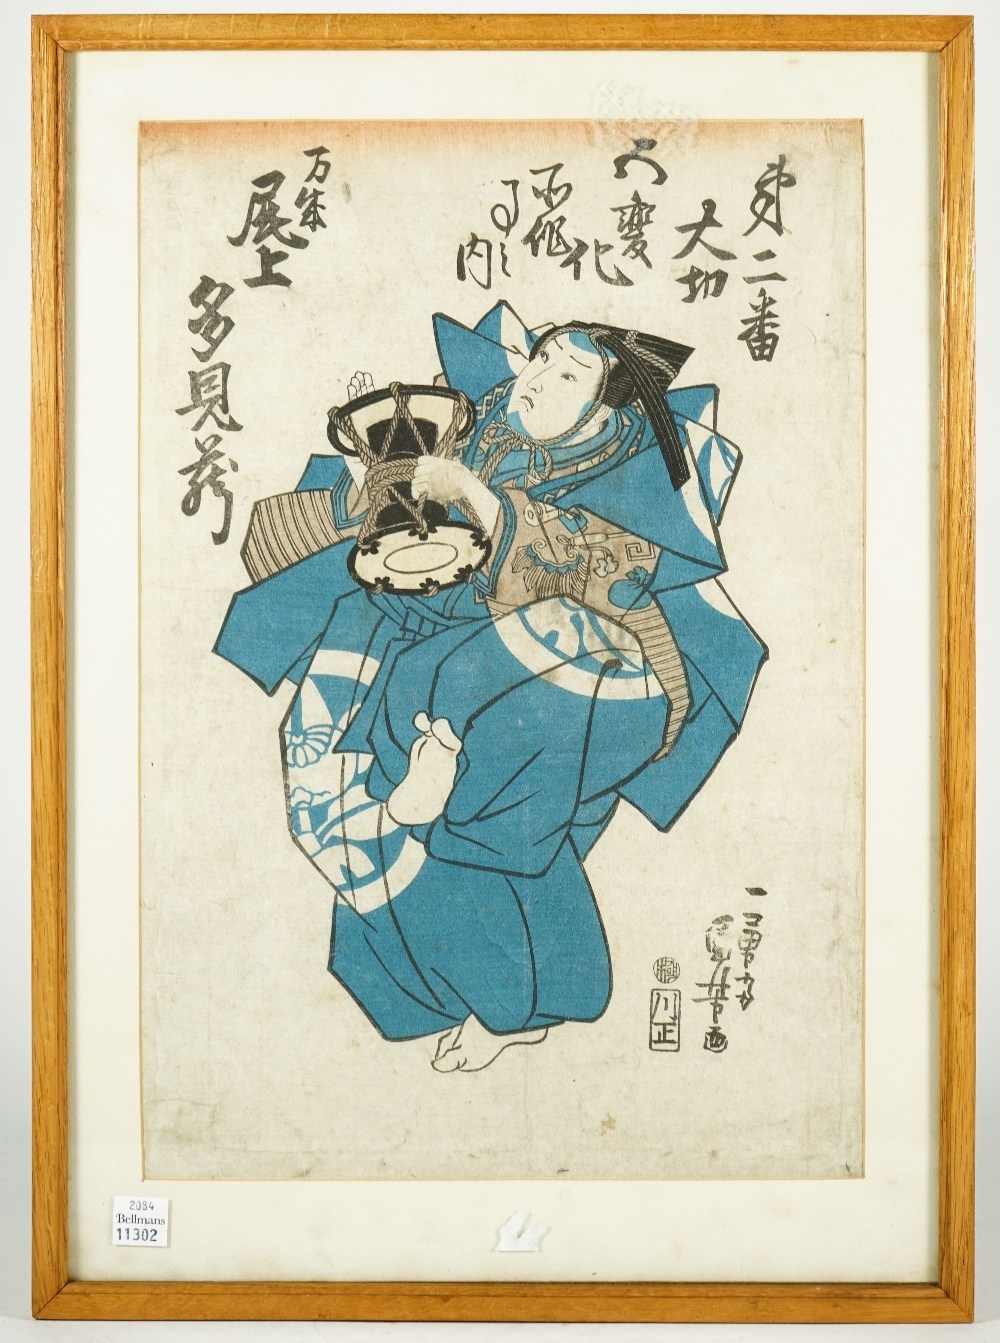 第二番
大切
五変化
所作
事の内
万歳
尾上
多見蔵
一勇斎
国芳画
極
川正
2084
Bellmans
11302